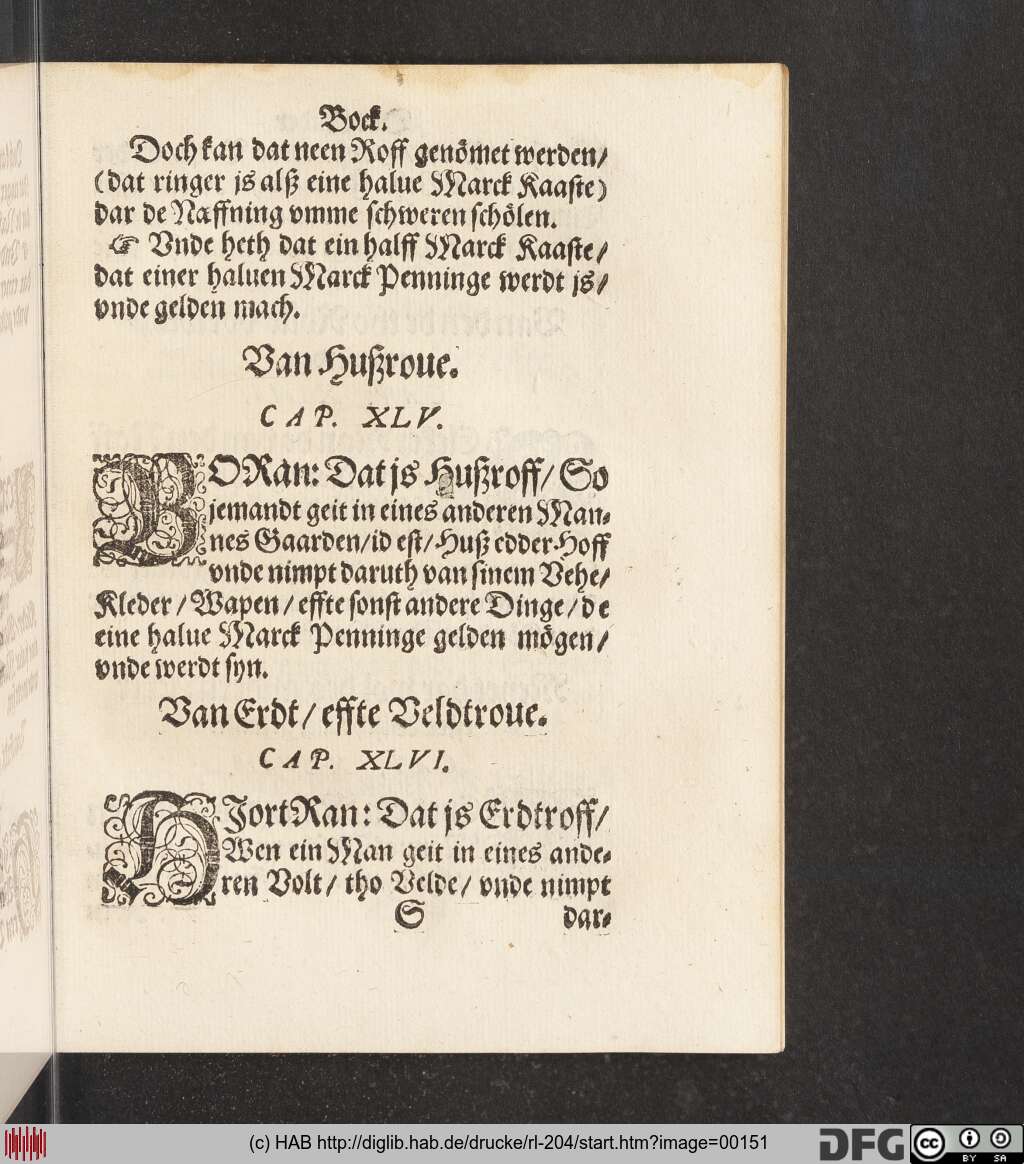 Bock.
Doch kan dat neen Roff genömet werden/
(dat ringer js alß eine halue Marck Kaaste)
dar de Næffning vmme schweren schölen.
☞ Vnde heth dat ein halff Marck Kaaste/
dat einer haluen Marck Penninge werdt js/
vnde gelden mach.
Van Hußroue.
CAP. XLV.
BORan: Dat js Hußroff/ So
jemandt geit in eines anderen Man⸗
nes Gaarden/ id est/ Huß edder Hoff
vnde nimpt daruth van sinem Vehe/
Kleder/ Wapen/ effte sonst andere Dinge/ de
eine halue Marck Penninge gelden mögen/
vnde werdt syn.
Van Erdt/ effte Veldtroue.
CAP. XLVI.
HJortRan: Dat js Erdtroff/
Wen ein Man geit in eines ande⸗
ren Volt/ tho Velde/ vnde nimpt
S dar⸗
(c) HAB http://diglib.hab.de/drucke/rl-204/start.htm?image=00151
DFG cc BY SA